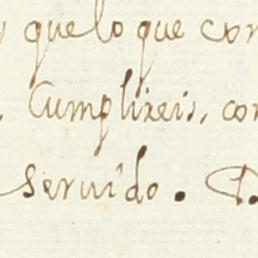 y quelo que con
Cumplireis, con
Seruido. P.